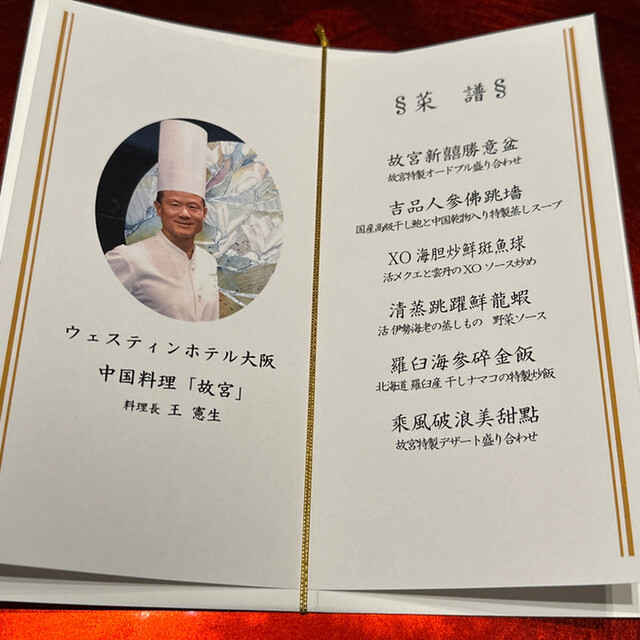 ウェスティンホテル大阪
中国料理「故宮」
料理長 王 憲生
§菜 譜§
故宮新囍勝意盆
故宮特製オードブル盛り合わせ
吉品人參佛跳墻
国産高級干し鮑と中国乾物入り特製蒸しスープ
XO 海胆炒鮮斑魚球
活メクエと雲丹のXO ソース炒め
清蒸跳躍鮮龍蝦
活 伊勢海老の蒸しもの 野菜ソース
羅臼海參碎金飯
北海道 羅臼産 干しナマコの特製炒飯
乘風破浪美甜點
故宮特製デザート盛り合わせ